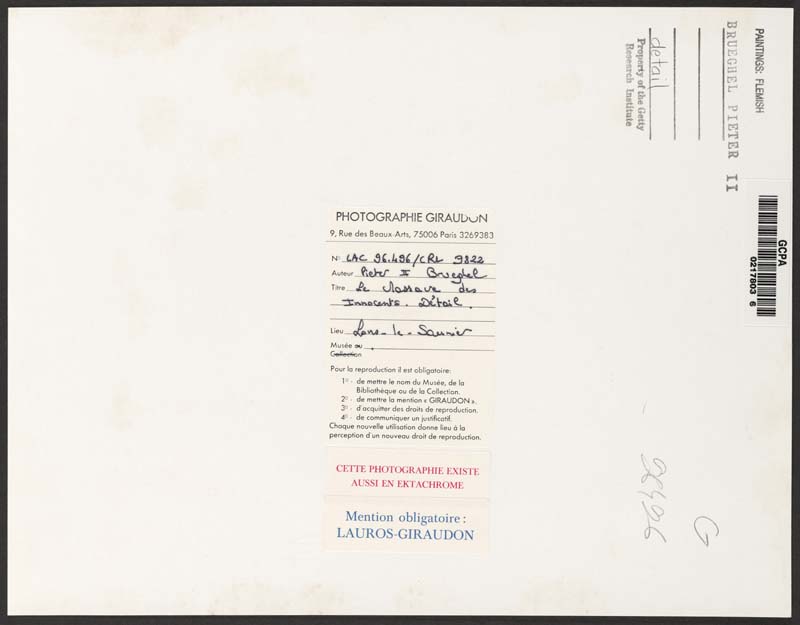 PAINTINGS: FLEMISH
BRUEGHEL PIETER II
detail
Property of the Getty
Research Institute
GCPA
0217803 6
PHOTOGRAPHIE GIRAUDON
9, Rue des Beaux-Arts, 75006 Paris 3269383
N° LAC 96.496/CRL 9822
Auteur Pieter II Brueghel
Titre Le Massacre des
Innocents. Détail.
Lieu Lons-le-Saunier
Musée ou .
Collection
Pour la reproduction il est obligatoire:
1° - de mettre le nom du Musée, de la
Bibliothèque ou de la Collection.
2° - de mettre la mention « GIRAUDON ».
3° - d'acquitter des droits de reproduction.
4° - de communiquer un justificatif.
Chaque nouvelle utilisation donne lieu à la
perception d'un nouveau droit de reproduction.
CETTE PHOTOGRAPHIE EXISTE
AUSSI EN EKTACHROME
Mention obligatoire :
LAUROS-GIRAUDON
96496
G